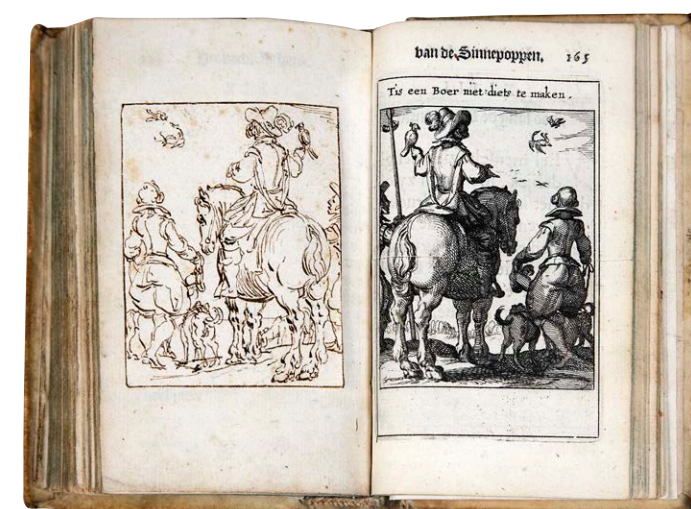 van de Sinnepoppen. 165
Tis een Boer niet diets te maken.